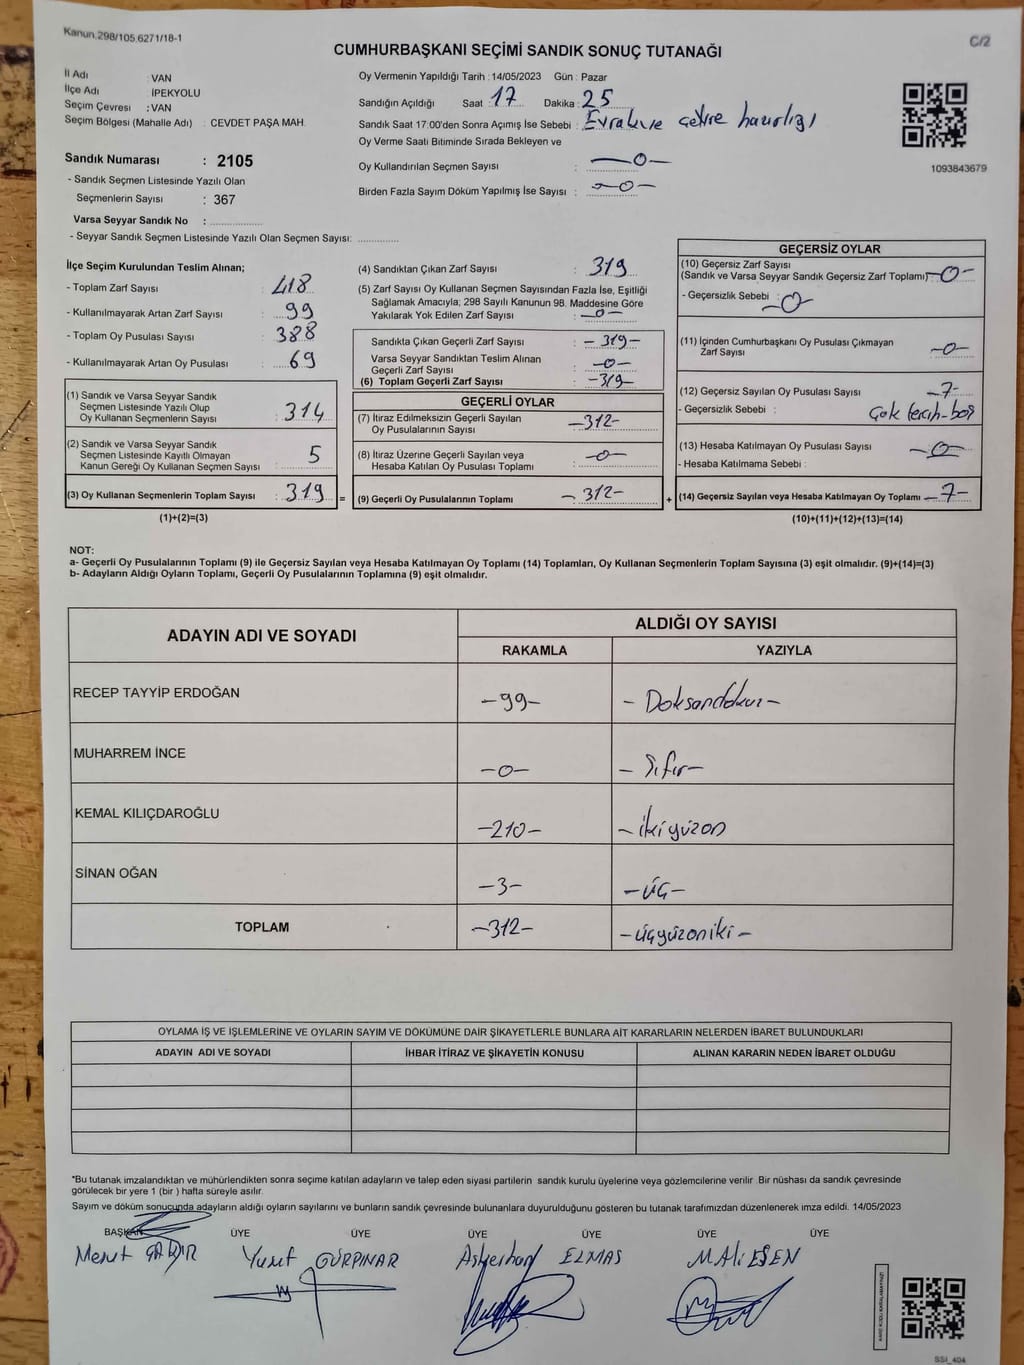 Kanun.298/105.6271/18-1
C/2
CUMHURBAŞKANI SEÇİMİ SANDIK SONUÇ TUTANAĞI
İl Adı : VAN
İlçe Adı İPEKYOLU
Seçim Çevresi : VAN
Seçim Bölgesi (Mahalle Adı) : CEVDET PAŞA MAH.
Sandık Numarası : 2105
- Sandık Seçmen Listesinde Yazılı Olan
Seçmenlerin Sayısı : 367
Varsa Seyyar Sandık No :
- Seyyar Sandık Seçmen Listesinde Yazılı Olan Seçmen Sayısı:
Oy Vermenin Yapıldığı Tarih : 14/05/2023 Gün : Pazar
Sandığın Açıldığı Saat : 17 Dakika : 25
Sandık Saat 17:00'den Sonra Açımış İse Sebebi : Evrak ve çevre hazırlığı
Oy Verme Saati Bitiminde Sırada Bekleyen ve
Oy Kullandırılan Seçmen Sayısı : —0—
Birden Fazla Sayım Döküm Yapılmış İse Sayısı : —0—
1093843679
İlçe Seçim Kurulundan Teslim Alınan;
- Toplam Zarf Sayısı : 418
- Kullanılmayarak Artan Zarf Sayısı : 99
- Toplam Oy Pusulası Sayısı : 388
- Kullanılmayarak Artan Oy Pusulası : 69
(1) Sandık ve Varsa Seyyar Sandık
Seçmen Listesinde Yazılı Olup
Oy Kullanan Seçmenlerin Sayısı : 314
(2) Sandık ve Varsa Seyyar Sandık
Seçmen Listesinde Kayıtlı Olmayan
Kanun Gereği Oy Kullanan Seçmen Sayısı : 5
(3) Oy Kullanan Seçmenlerin Toplam Sayısı : 319 =
(1)+(2)=(3)
(4) Sandıktan Çıkan Zarf Sayısı : 319
(5) Zarf Sayısı Oy Kullanan Seçmen Sayısından Fazla İse, Eşitliği
Sağlamak Amacıyla; 298 Sayılı Kanunun 98. Maddesine Göre
Yakılarak Yok Edilen Zarf Sayısı : —0—
Sandıkta Çıkan Geçerli Zarf Sayısı : —319—
Varsa Seyyar Sandıktan Teslim Alınan
Geçerli Zarf Sayısı : —0—
(6) Toplam Geçerli Zarf Sayısı : —319—
GEÇERLİ OYLAR
(7) İtiraz Edilmeksizin Geçerli Sayılan
Oy Pusulalarının Sayısı : —312—
(8) İtiraz Üzerine Geçerli Sayılan veya
Hesaba Katılan Oy Pusulası Toplamı : —0—
(9) Geçerli Oy Pusulalarının Toplamı : —312— +
GEÇERSİZ OYLAR
(10) Geçersiz Zarf Sayısı
(Sandık ve Varsa Seyyar Sandık Geçersiz Zarf Toplamı) —0—
- Geçersizlik Sebebi : —0—
(11) İçinden Cumhurbaşkanı Oy Pusulası Çıkmayan
Zarf Sayısı —0—
(12) Geçersiz Sayılan Oy Pusulası Sayısı —7—
- Geçersizlik Sebebi : Çok tercih-boş
(13) Hesaba Katılmayan Oy Pusulası Sayısı —0—
- Hesaba Katılmama Sebebi :
(14) Geçersiz Sayılan veya Hesaba Katılmayan Oy Toplamı —7—
(10)+(11)+(12)+(13)=(14)
NOT:
a- Geçerli Oy Pusulalarının Toplamı (9) ile Geçersiz Sayılan veya Hesaba Katılmayan Oy Toplamı (14) Toplamları, Oy Kullanan Seçmenlerin Toplam Sayısına (3) eşit olmalıdır. (9)+(14)=(3)
b- Adayların Aldığı Oyların Toplamı, Geçerli Oy Pusulalarının Toplamına (9) eşit olmalıdır.
ADAYIN ADI VE SOYADI
ALDIĞI OY SAYISI
RAKAMLA YAZIYLA
RECEP TAYYİP ERDOĞAN —99— — Doksandokuz—
MUHARREM İNCE —0— — Sıfır—
KEMAL KILIÇDAROĞLU —210— —İkiyüzon
SİNAN OĞAN —3— —üç—
TOPLAM —312— —üçyüzoniki—
OYLAMA İŞ VE İŞLEMLERİNE VE OYLARIN SAYIM VE DÖKÜMÜNE DAİR ŞİKAYETLERLE BUNLARA AİT KARARLARIN NELERDEN İBARET BULUNDUKLARI
ADAYIN ADI VE SOYADI İHBAR İTİRAZ VE ŞİKAYETİN KONUSU ALINAN KARARIN NEDEN İBARET OLDUĞU
*Bu tutanak imzalandıktan ve mühürlendikten sonra seçime katılan adayların ve talep eden siyasi partilerin sandık kurulu üyelerine veya gözlemcilerine verilir .Bir nüshası da sandık çevresinde
görülecek bir yere 1 (bir ) hafta süreyle asılır.
Sayım ve döküm sonucunda adayların aldığı oyların sayılarını ve bunların sandık çevresinde bulunanlara duyurulduğunu gösteren bu tutanak tarafımızdan düzenlenerek imza edildi. 14/05/2023
BAŞKAN ÜYE ÜYE ÜYE ÜYE ÜYE ÜYE
Yusuf GÜRPINAR ELMAS M Ali ESEN
SSİ_404